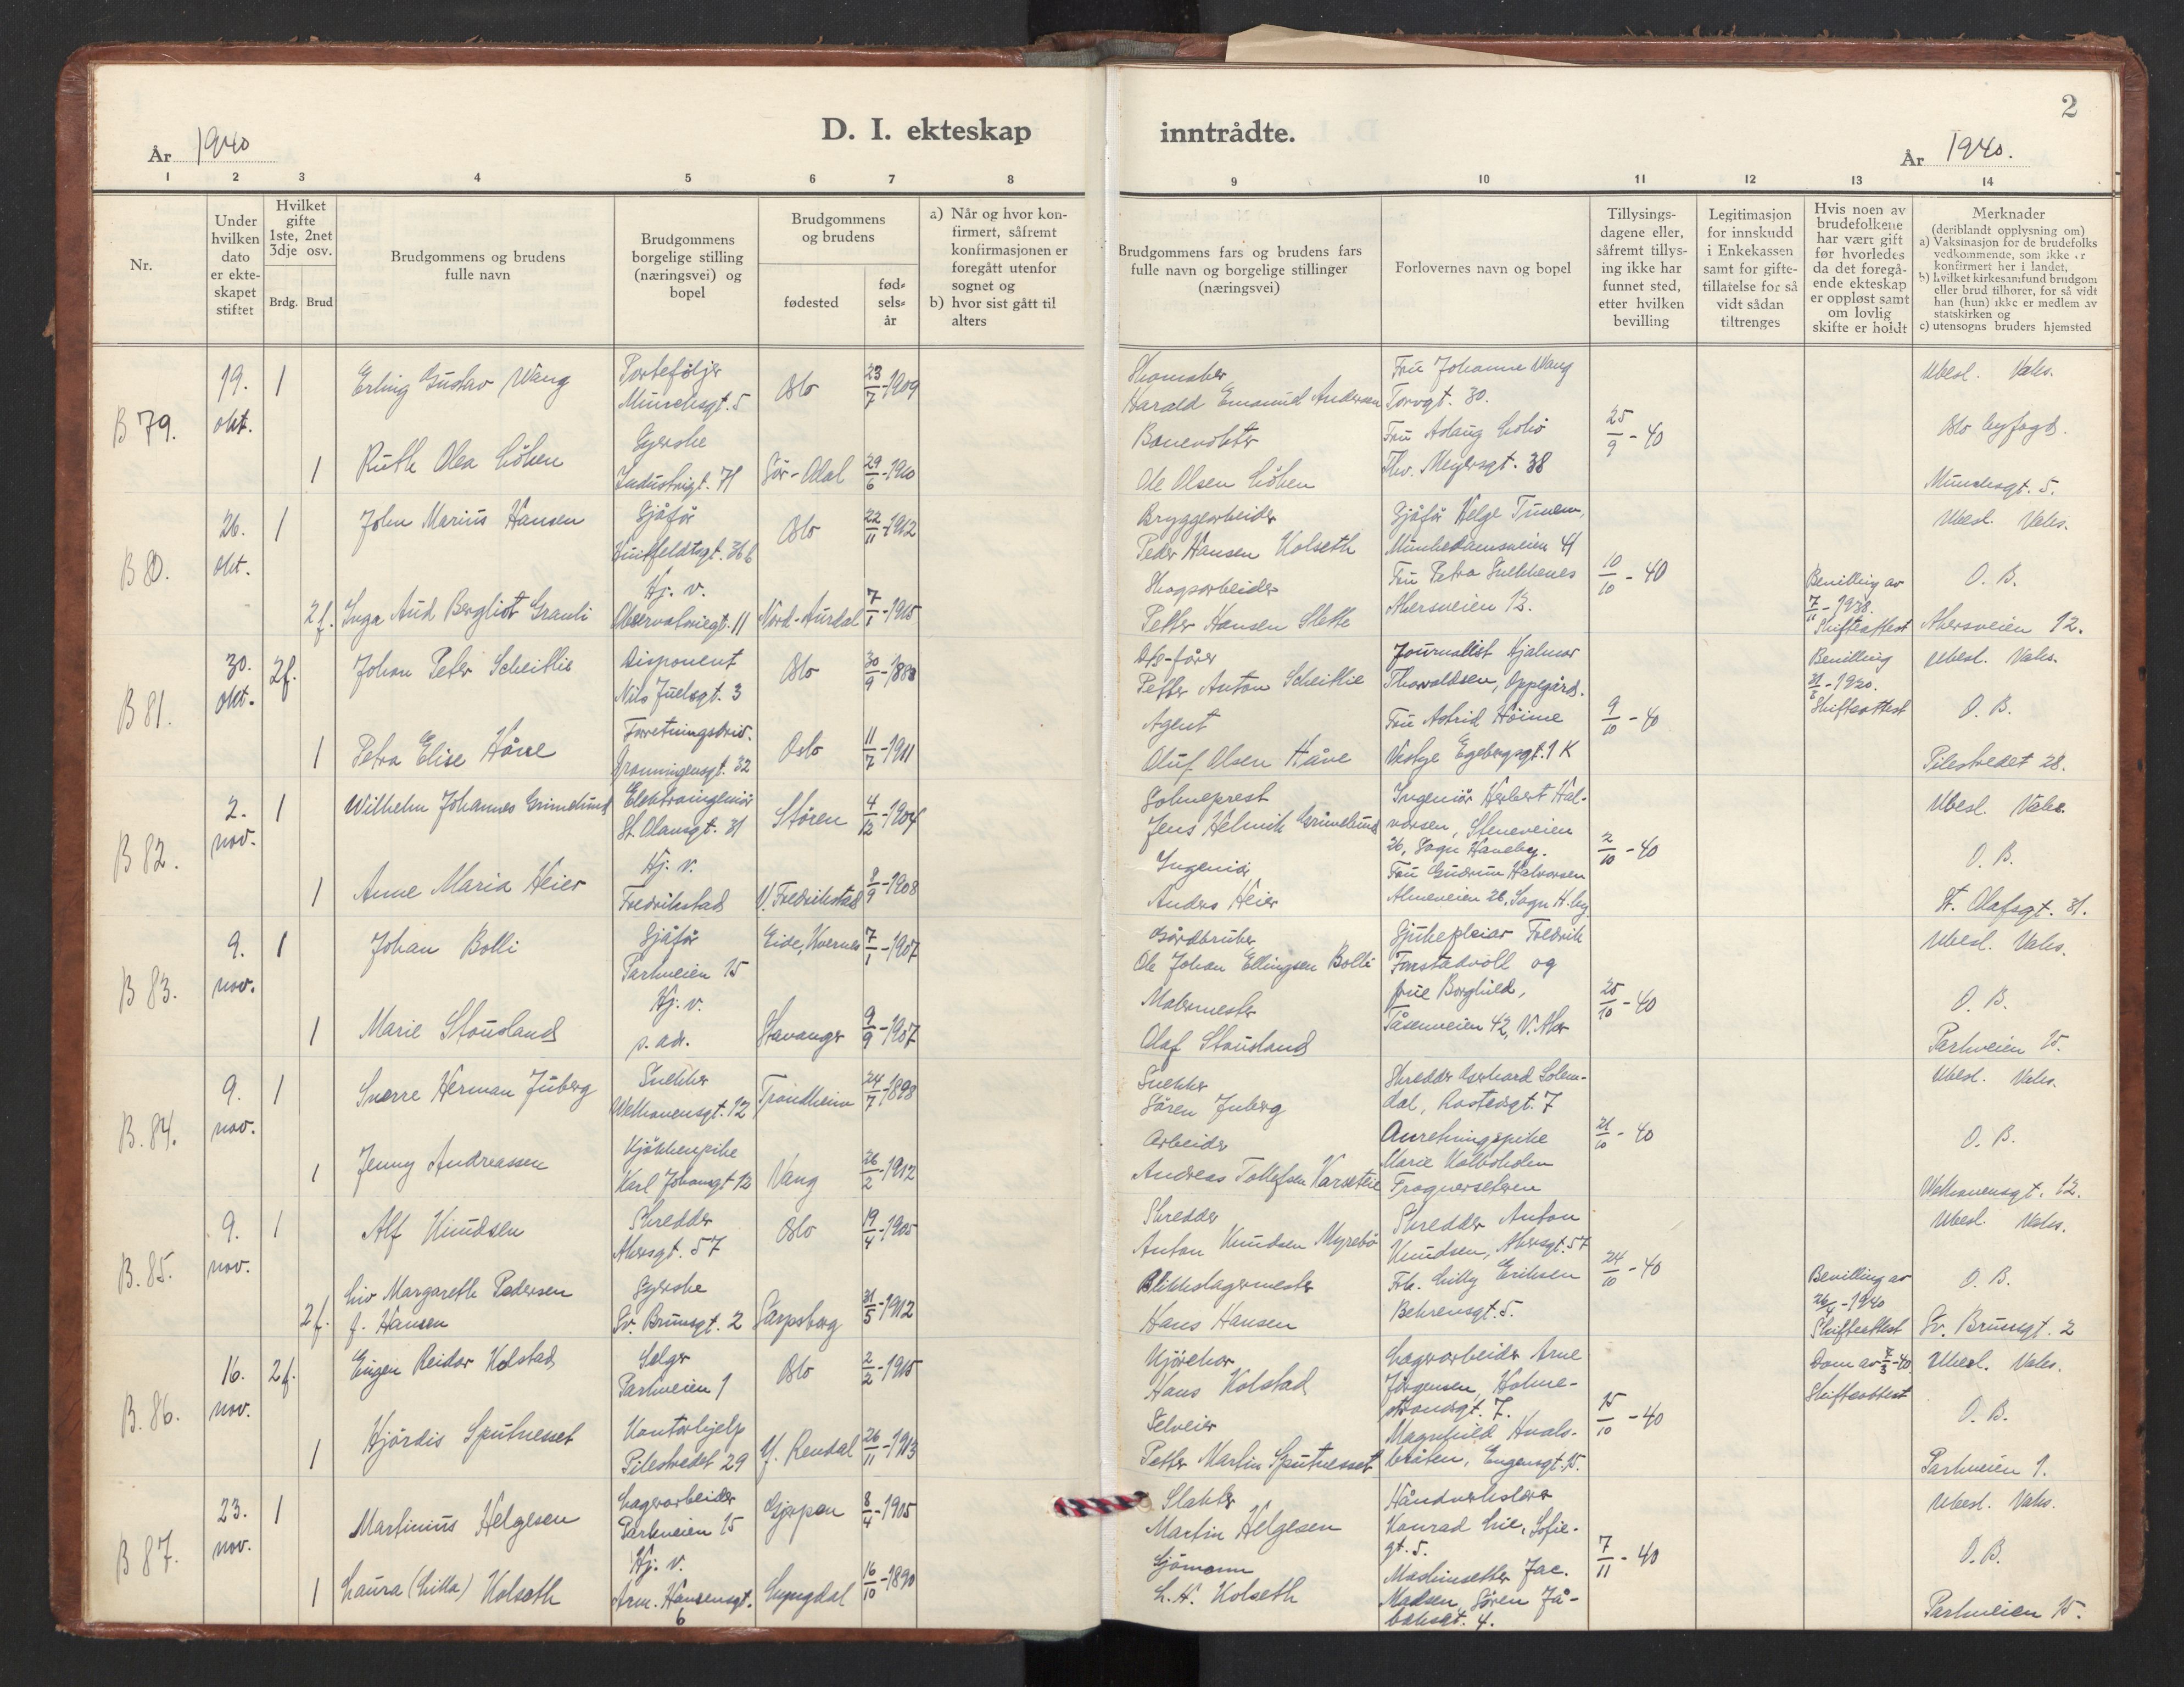 2
D. I. ekteskap inntrådte.
År 1940
År 1940.
1 2 3 4 5 6 7 8 9 10 11 12 13 14
Nr.
Under hvilken dato er ekteskapet stiftet
Hvilket gifte 1ste, 2net 3dje osv.
Brdg. Brud
Brudgommens og brudens fulle navn
Brudgommens borgelige stilling (næringsvei) og bopel
Brudgommens og brudens
fødested
fødselsår
a) Når og hvor konfirmert, såfremt konfirmasjonen er foregått utenfor sognet og
b) hvor sist gått til alters
Brudgommens fars og brudens fars fulle navn og borgelige stillinger (næringsvei)
Forlovernes navn og bopel
Tillysingsdagene eller, såfremt tillysing ikke har funnet sted, etter hvilken bevilling
Legitimasjon for innskudd i Enkekassen samt for giftetillatelse for så vidt sådan tiltrenges
Hvis noen av brudefolkene har vært gift før hvorledes da det foregående ekteskap er oppløst samt om lovlig skifte er holdt
Merknader
(deriblandt opplysning om)
a) Vaksinasjon for de brudefolks vedkommende, som ikke er konfirmert her i landet,
b) hvilket kirkesamfund brudgom eller brud tilhører, for så vidt han (hun) ikke er medlem av statskirken og
c) utensogns bruders hjemsted
B 79.
19. okt.
1
Erling Gustav Wang
Porteføljer
Munchsgt. 5
Oslo
23/7-1909
Skomaker
Harald Emanuel Andersen
Fru Johanne Wang
Torvgt. 30.
25/9 - 40
Ubesl. Vaks.
Oslo byfogd.
Munchsgt. 5.
1
Ruth Olea Löken
Syerske
Industrigt. 71
Sør-Odal
29/6-1910
Banevokter
Ole Olsen Löken
Fru Aslaug
Thv. Meyersgt. 38
B 80.
26. okt.
1
John Marius Hansen
Sjåför
Huitfeldtsgt. 36 b
Oslo
22/11-1912
Bryggearbeider
Peder Hansen Kolseth
Sjåför Helge
Munkedamsveien 41
10/10 - 40
Ubesl. Vaks.
O. B.
Akersveien 12.
2 f.
Inga Aud Bergliot Granli
Hj. v.
Observatoriegt. 11
Nord-Aurdal
7/1-1915
Skogsarbeider
Petter Hansen Slette
Fru Petra Snekkenes
Akersveien 12.
Bevilling av
7/11-1938.
Skifteattest
B 81.
30. okt.
2 f.
Johan Peter Scheitlie
Disponent
Nils Juelsgt. 3
Oslo
Petter Anton Scheitlie
Journalist Hjalmar
Thorvaldsen, Oppegård.
9/10 - 40
Bevilling
Skifteattest
Ubesl. Vaks.
O. B.
Pilestredet 28.
1
Petra Elise Håve
Forretningsdriv.
Oslo
11/7-1911
Agent
Oluf Olsen Håve
Fru Astrid Höime
Egebergsgt. 1 K
B 82.
2. nov.
1
Wilhelm Johannes Grimelund
Elektroingeniör
St. Olavsgt. 31
Stören
4/12-1904
Sogneprest
Jens Helmik Grimelund
Ingeniör Herbert Halvorsen, Steneveien
26, Sogn Haveby.
2/10 - 40
Ubesl. Vaks.
O. B.
St. Olafsgt. 31.
1
Anne Maria Heier
Hj. v.
Fredrikstad
V. Fredrikstad
8/9-1908
Ingeniör
Anders Heier
Fru Gudrun Halvorsen
Almeveien 26, Sogn H.by
B 83.
9. nov.
1
Johan Bolli
Sjåför
Parkveien 15
Eide, Kvernes
7/1-1907
Gårdbruker
Ole Johan Ellingsen Bolli
Sjukepleiar Fredrik
Farstadvoll og
frue Borghild,
Tåsenveien 42, V. Aker
25/10 - 40
Ubesl. Vaks.
O. B.
Parkveien 15.
1
Marie Stousland
Hj. v.
s. ad.
Stavanger
9/9-1907
Malermester
Olaf Stousland
B. 84.
9. nov.
1
Sverre Herman Juberg
Snekker
Welhavensgt. 12
Trondheim
24/7-1898
Snekker
Sören Juberg
Skredder Gerhard Solemdal, Rostedsgt. 7
21/10 - 40
Ubesl. Vaks.
O. B.
Welhavensgt. 12.
1
Jenny Andreassen
Kjökkenpike
Karl Johansgt 12
Vang
26/2-1912
Arbeider
Andreas Tollefsen
Anretningspike
Marie Kolbotnden
Frognerseteren
B. 85.
9. nov.
1
Alf Knudsen
Skredder
Akersgt. 57
Oslo
19/4-1905
Skredder
Anton Knudsen Myrebö
Skredder Anton
Knudsen, Akersgt. 57
24/10 - 40
Ubesl. Vaks.
O. B.
Sv. Brunsgt. 2
2 f.
Liv Margareth Pedersen
f. Hansen
Syerske
Sv. Brunsgt. 2
Sarpsborg
31/5-1912
Blikkslagermester
Hans Hansen
Frk. Lilly Eriksen
Behrensgt. 5.
Bevilling av
26/4-1940
Skifteattest
B. 86.
16. nov.
2 f.
Eugen Reidar Kolstad
Selger
Parkveien 1
Oslo
2/2-1915
Kjörekar
Hans Kolstad
Lagerarbeider Arne
Jörgensen, Holmestrandsgt. 7.
15/10 - 40
Dom av 7/3-40
Skifteattest
Ubesl. Vaks.
O. B.
Parkveien 1.
1
Hjördis Sputneset
Kontorhjelp
Pilestredet 29
Y. Rendal
26/11-1913
Selveier
Petter Martin Sputneset
Magnhild Kvalsbråten, Eugensgt. 15.
B 87.
23. nov.
1
Martinius Helgesen
Lagerarbeider
Parkveien 15
Gjerpen
8/4-1905
Slakter
Martin Helgesen
Håndverkslærer
Konrad Lie, Sofiegt. 5.
7/11 - 40
Ubesl. Vaks.
O. B.
Parkveien 15.
1
Laura (Lilla) Kolseth
Hj. v.
Arm. Hansensgt. 6
Lyngdal
16/10-1890
Sjömann
L. H. Kolseth
Maskinsetter Jac.
Madsen, Sören Jåbæksgt. 4.